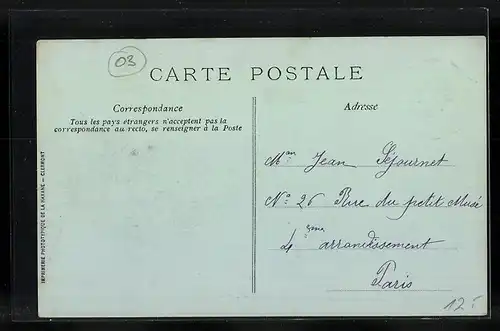 03
CARTE POSTALE
Correspondance
Tous les pays étrangers n'acceptent pas la
correspondance au recto, se renseigner à la Poste
Adresse
Jean Séjournet
N° 26 Rue du petit Musé
4ème arrondissement
Paris
12
IMPRIMERIE PHOTOTYPIQUE DE LA HAVANE — CLERMONT